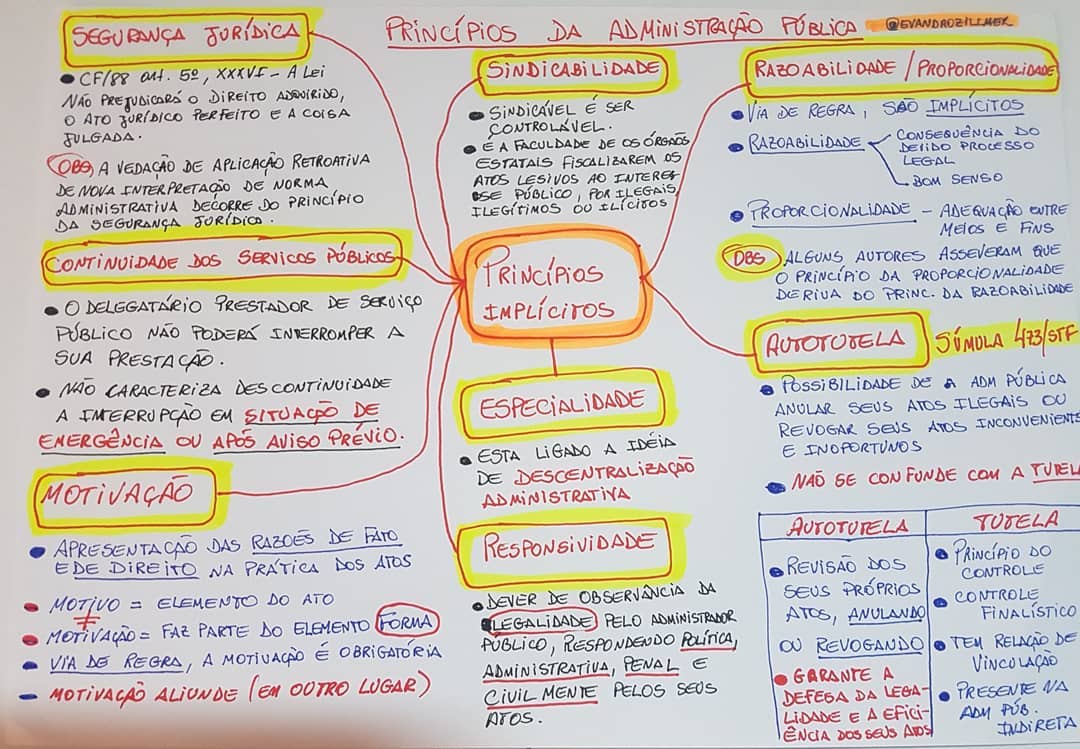 PRINCÍPIOS DA ADMINISTRAÇÃO PÚBLICA @EVANDROZILLMER
SEGURANÇA JURÍDICA
• CF/88 art. 5º, XXXVI - A LEI
NÃO PREJUDICARÁ O DIREITO ADQUIRIDO,
O ATO JURÍDICO PERFEITO E A COISA
JULGADA.
OBS, A VEDAÇÃO DE APLICAÇÃO RETROATIVA
DE NOVA INTERPRETAÇÃO DE NORMA
ADMINISTRATIVA DECORRE DO PRINCÍPIO
DA SEGURANÇA JURÍDICA.
CONTINUIDADE DOS SERVICOS PÚBLICOS
• O DELEGATÁRIO PRESTADOR DE SERVIÇO
PÚBLICO NÃO PODERÁ INTERROMPER A
SUA PRESTAÇÃO.
• NÃO CARACTERIZA DESCONTINUIDADE
A INTERRUPÇÃO EM SITUAÇÃO DE
EMERGÊNCIA OU APÓS AVISO PRÉVIO.
MOTIVAÇÃO
• APRESENTAÇÃO DAS RAZOÊS DE FATO
E DE DIREITO NA PRÁTICA DOS ATOS
• MOTIVO = ELEMENTO DO ATO
≠
• MOTIVAÇÃO = FAZ PARTE DO ELEMENTO FORMA
- VIA DE REGRA, A MOTIVAÇÃO É OBRIGATÓRIA
- MOTIVAÇÃO ALIUNDE (EM OUTRO LUGAR)
SINDICABILIDADE
• SINDICÁVEL É SER
CONTROLÁVEL.
• É A FACULDADE DE OS ÓRGÃOS
ESTATAIS FISCALIZAREM OS
ATOS LESIVOS AO INTERES
SE PÚBLICO, POR ILEGAIS,
ILEGÍTIMOS OU ILÍCITOS
PRINCÍPIOS
IMPLÍCITOS
ESPECIALIDADE
• ESTA LIGADO A IDÉIA
DE DESCENTRALIZAÇÃO
ADMINISTRATIVA
RESPONSIVIDADE
• DEVER DE OBSERVÂNCIA DA
LEGALIDADE PELO ADMINISTRADOR
PÚBLICO, RESPONDENDO POLÍTICA,
ADMINISTRATIVA, PENAL E
CIVILMENTE PELOS SEUS
ATOS.
RAZOABILIDADE / PROPORCIONALIDADE
• VIA DE REGRA, SÃO IMPLÍCITOS
• RAZOABILIDADE
CONSEQUÊNCIA DO
DEVIDO PROCESSO
LEGAL
BOM SENSO
• PROPORCIONALIDADE - ADEQUAÇÃO ENTRE
MEIOS E FINS
OBS ALGUNS AUTORES ASSEVERAM QUE
O PRINCÍPIO DA PROPORCIONALIDADE
DERIVA DO PRINC. DA RAZOABILIDADE
AUTOTUTELA SÚMULA 473/STF
• POSSIBILIDADE DE A ADM PÚBLICA
ANULAR SEUS ATOS ILEGAIS OU
REVOGAR SEUS ATOS INCONVENIENTE
E INOPORTUNOS
• NÃO SE CONFUNDE COM A TUTELA
AUTOTUTELA
• REVISÃO DOS
SEUS PRÓPRIOS
ATOS, ANULANDO
OU REVOGANDO
• GARANTE A
DEFESA DA LEGA-
LIDADE E A EFICI-
ÊNCIA DOS SEUS ATOS
TUTELA
• PRINCÍPIO DO
CONTROLE
• CONTROLE
FINALÍSTICO
• TEM RELAÇÃO DE
VINCULAÇÃO
• PRESENTE NA
ADM PÚB.
INDIRETA